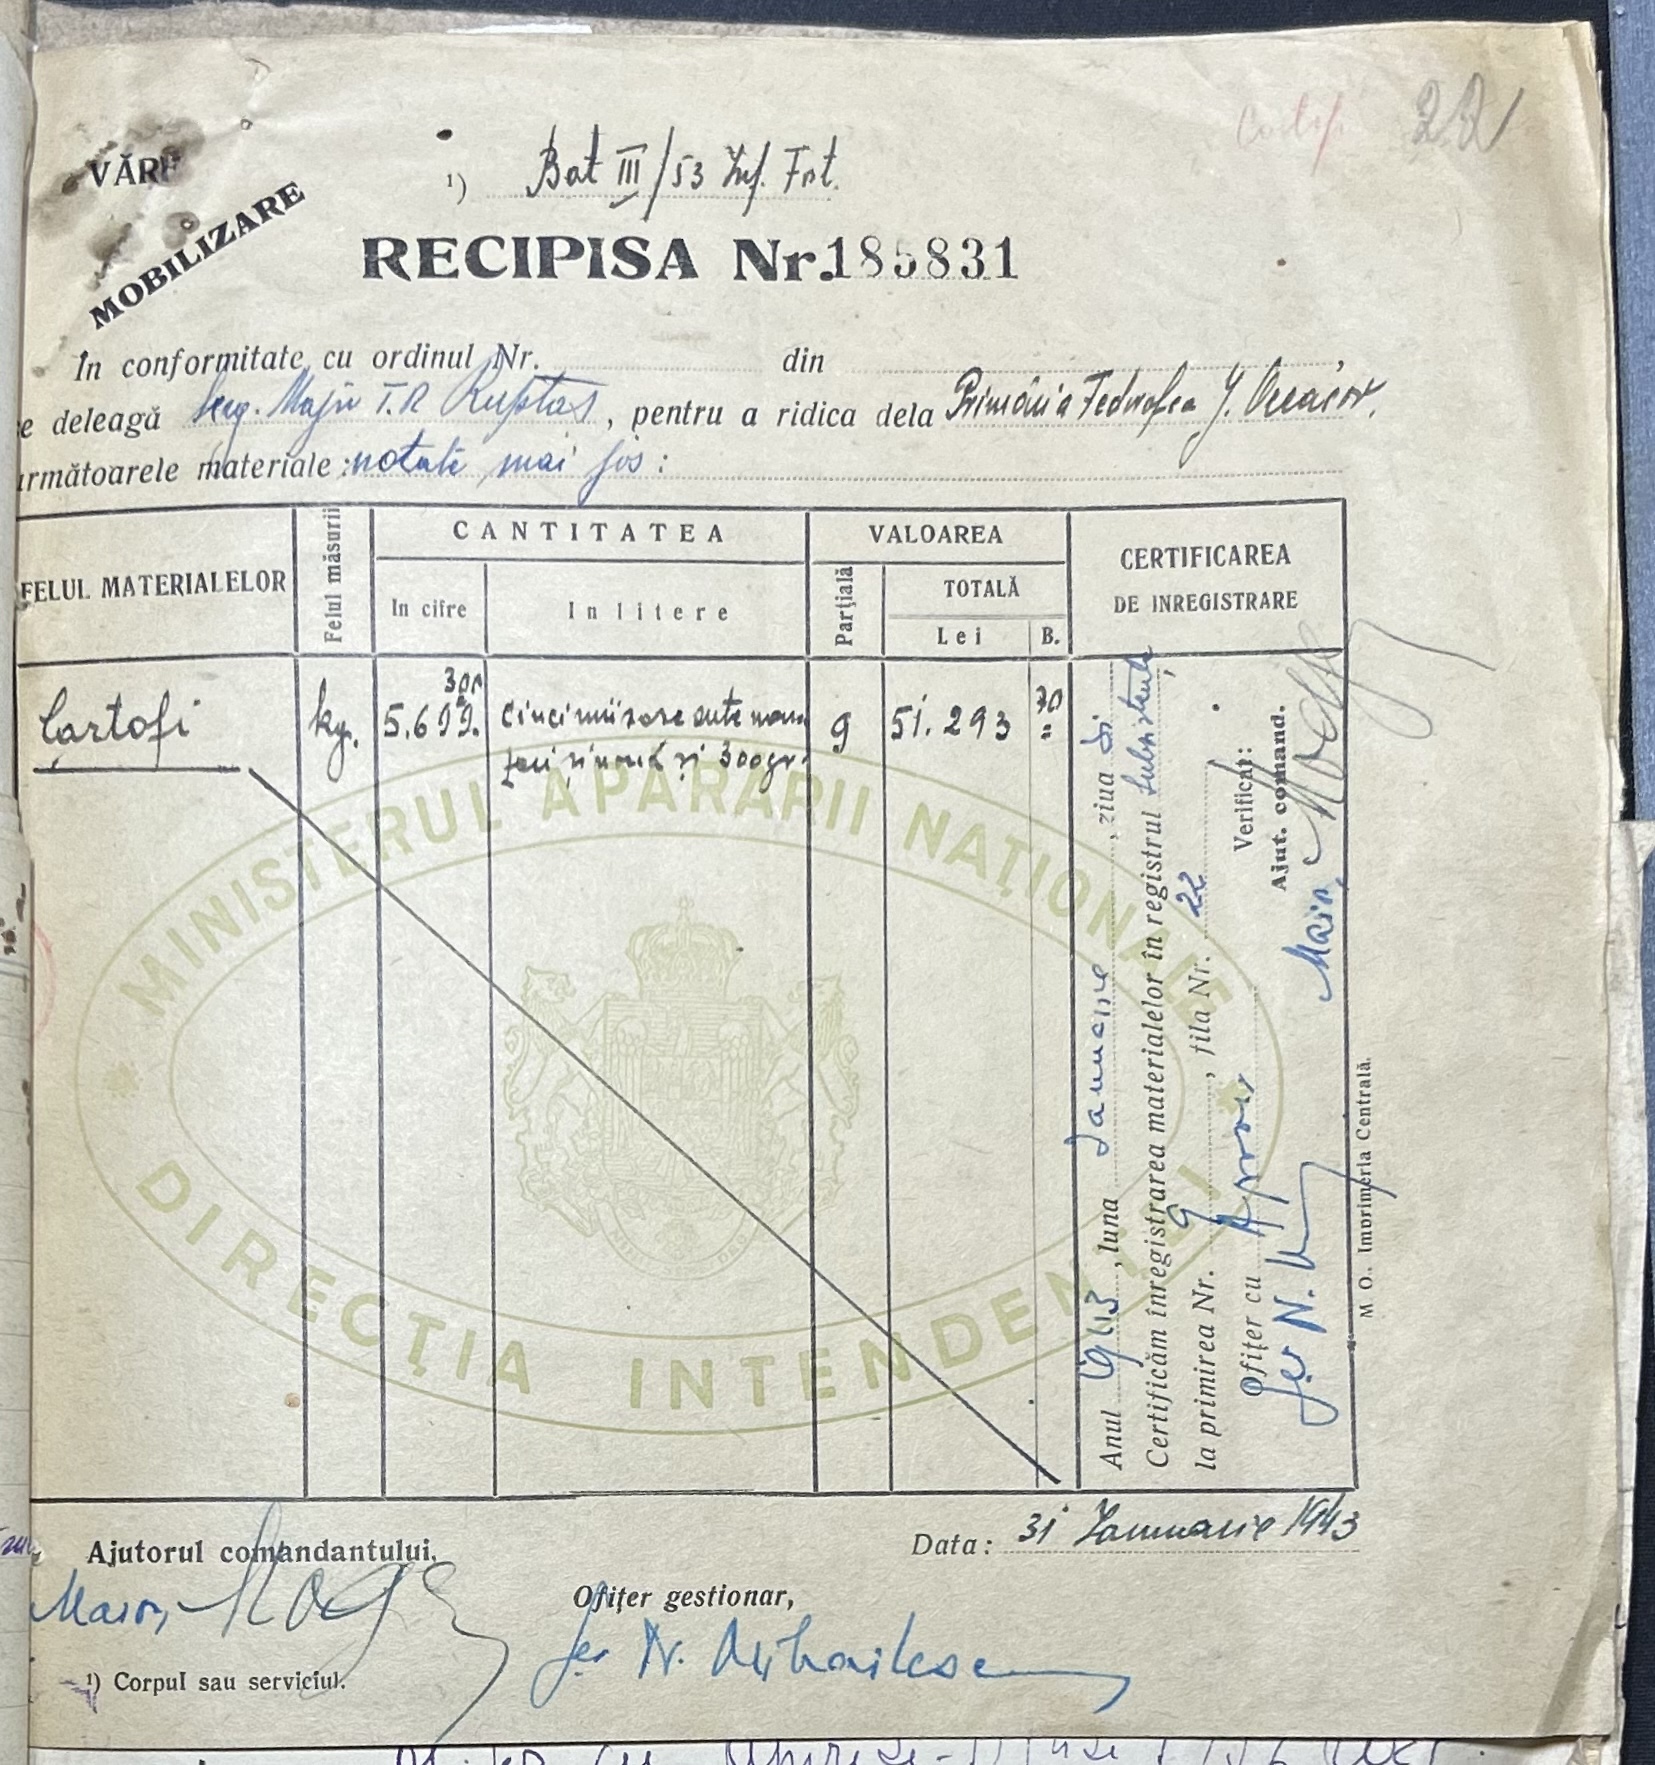 VĂRF
MOBILIZARE
22
¹) Bat III/53 Inf. Frt.
RECIPISA Nr. 185831
In conformitate cu ordinul Nr. din ,
e deleagă Serg. Major T.R , pentru a ridica dela Primăria J.
următoarele materiale: notate mai jos:
FELUL MATERIALELOR
Felul măsurii
CANTITATEA
In cifre
In litere
VALOAREA
Parțială
TOTALĂ
Lei
B.
CERTIFICAREA
DE INREGISTRARE
Cartofi
kg.
5.699.300
cinci mii șase sute nouă
zeci și nouă și 300 gr.
9
51.293
70
Anul 1943, luna Ianuarie, ziua 31
Certificăm înregistrarea materialelor în registrul subzistență
la primirea Nr. 9, fila Nr. 22
Ofițer cu Aprov.
Verificat:
Ajut. comand.
Maior,
M. O. Imprimeria Centrală.
MINISTERUL APARARII NAȚIONALE
DIRECȚIA INTENDENȚEI
Ajutorul comandantului,
Maior,
Data: 31 Ianuarie 1943
Ofițer gestionar,
N. Mihailescu
¹) Corpul sau serviciul.